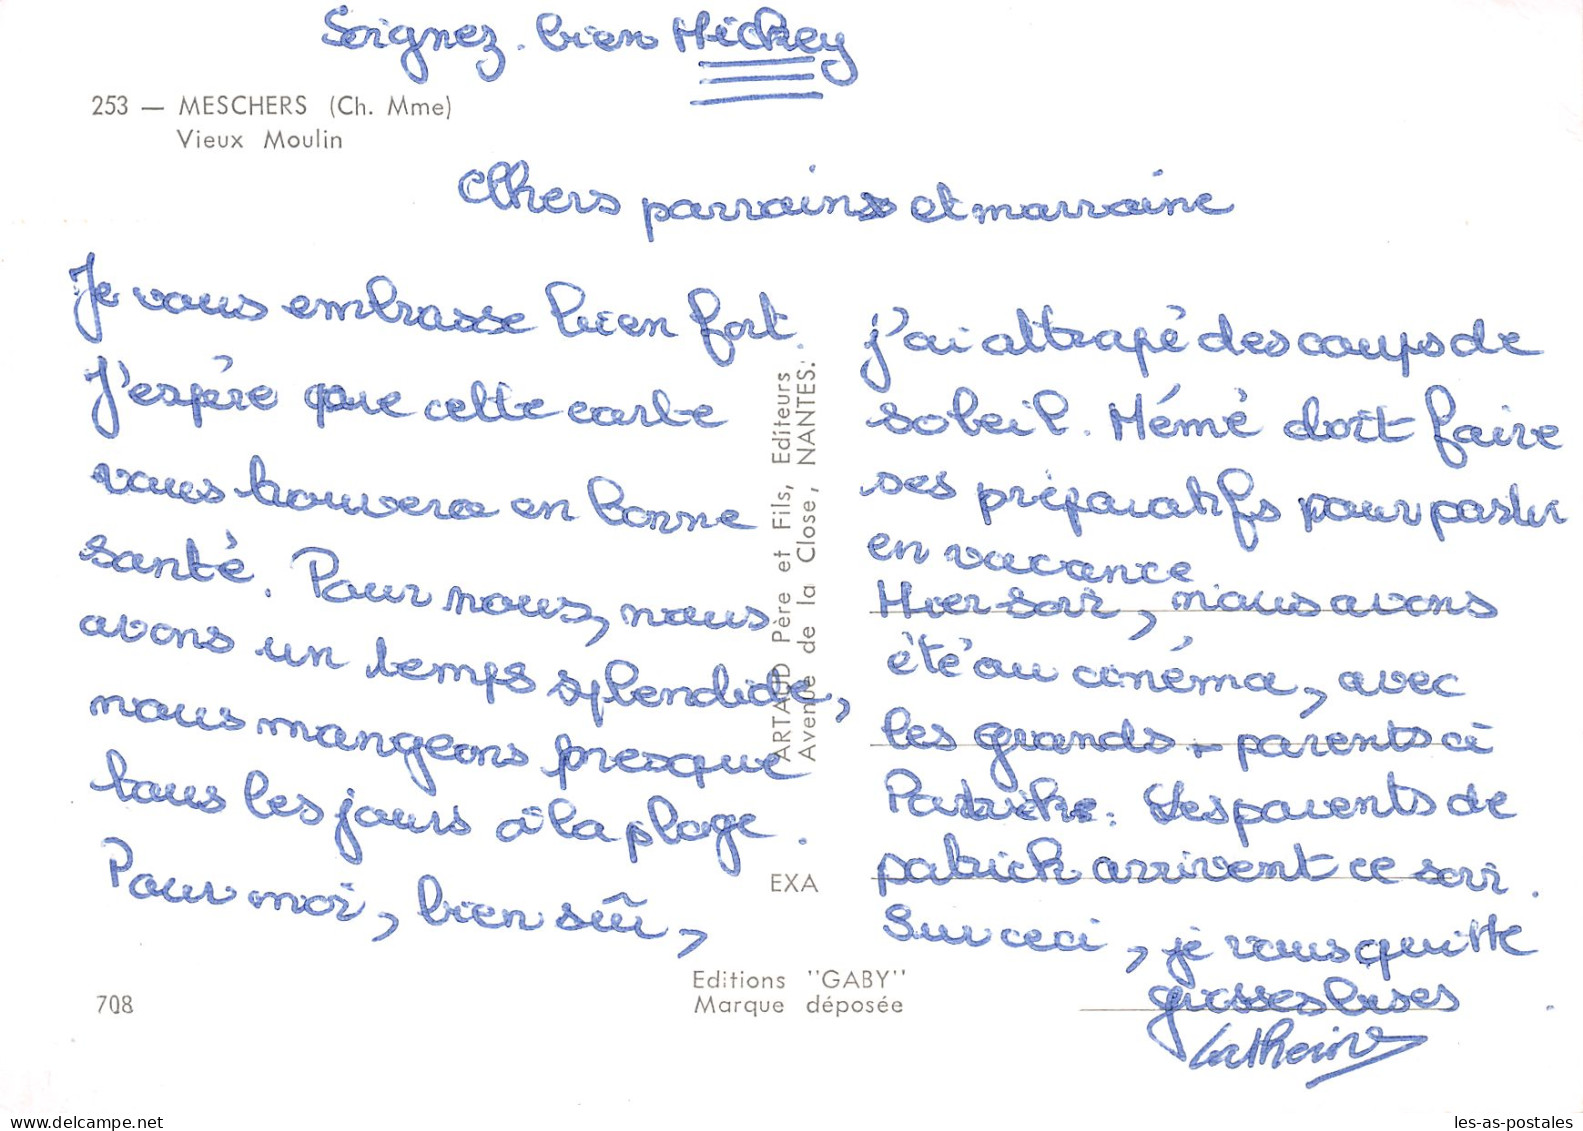 Soignez bien Mickey
253 — MESCHERS (Ch. Mme)
Vieux Moulin
Chers parrains et marraine
Je vous embrasse bien fort.
J'espére que cette carte
vous trouvera en bonne
santé. Pour nous, nous
avons un temps splendide,
nous mangeons presque
tous les jours à la plage.
Pour moi, bien sûr,
j'ai attrapé des coups de
soleil. Mémé doit faire
ses préparatifs pour partir
en vacance
Hier soir, nous avons
été au cinéma, avec
les grands-parents à
Patrick. Les parents de
patrick arrivent ce soir.
Sur ceci, je vous quitte
grosses bises
Catherine
ARTAUD Père et Fils, Editeurs
Avenue de la Close, NANTES.
EXA
Editions "GABY"
Marque déposée
708
Delcampe.net
les-as-postales